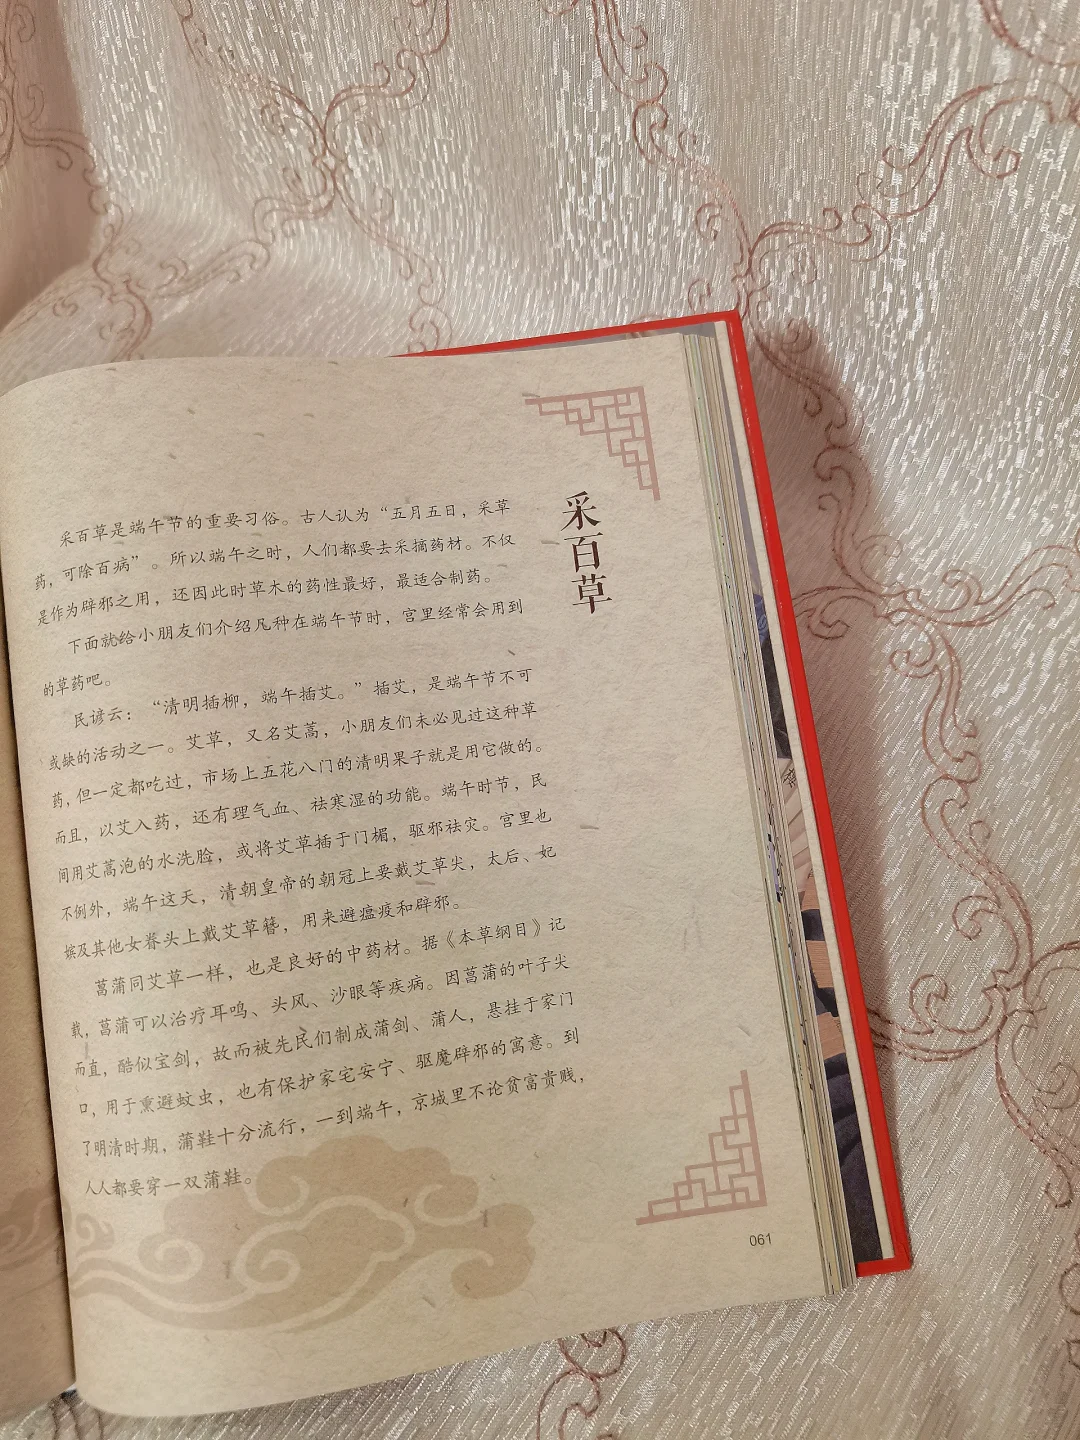 采百草
采百草是端午节的重要习俗。古人认为“五月五日，采草
药，可除百病”。所以端午之时，人们都要去采摘药材。不仅
是作为辟邪之用，还因此时草木的药性最好，最适合制药。
下面就给小朋友们介绍几种在端午节时，宫里经常会用到
的草药吧。
民谚云：“清明插柳，端午插艾。”插艾，是端午节不可
或缺的活动之一。艾草，又名艾蒿，小朋友们未必见过这种草
药，但一定都吃过，市场上五花八门的清明果子就是用它做的。
而且，以艾入药，还有理气血、祛寒湿的功能。端午时节，民
间用艾蒿泡的水洗脸，或将艾草插于门楣，驱邪祛灾。宫里也
不例外，端午这天，清朝皇帝的朝冠上要戴艾草尖，太后、妃
嫔及其他女眷头上戴艾草簪，用来避瘟疫和辟邪。
菖蒲同艾草一样，也是良好的中药材。据《本草纲目》记
载，菖蒲可以治疗耳鸣、头风、沙眼等疾病。因菖蒲的叶子尖
而直，酷似宝剑，故而被先民们制成蒲剑、蒲人，悬挂于家门
口，用于熏避蚊虫，也有保护家宅安宁、驱魔辟邪的寓意。到
了明清时期，蒲鞋十分流行，一到端午，京城里不论贫富贵贱，
人人都要穿一双蒲鞋。
061